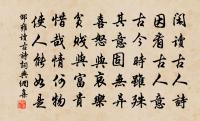 閑讀古人詩
因看古人意
古今時雖殊
其意固無異
喜怒與哀樂
貧賤與富貴
惜哉情何物
使人能如是
邵雍讀古詩詞典網集